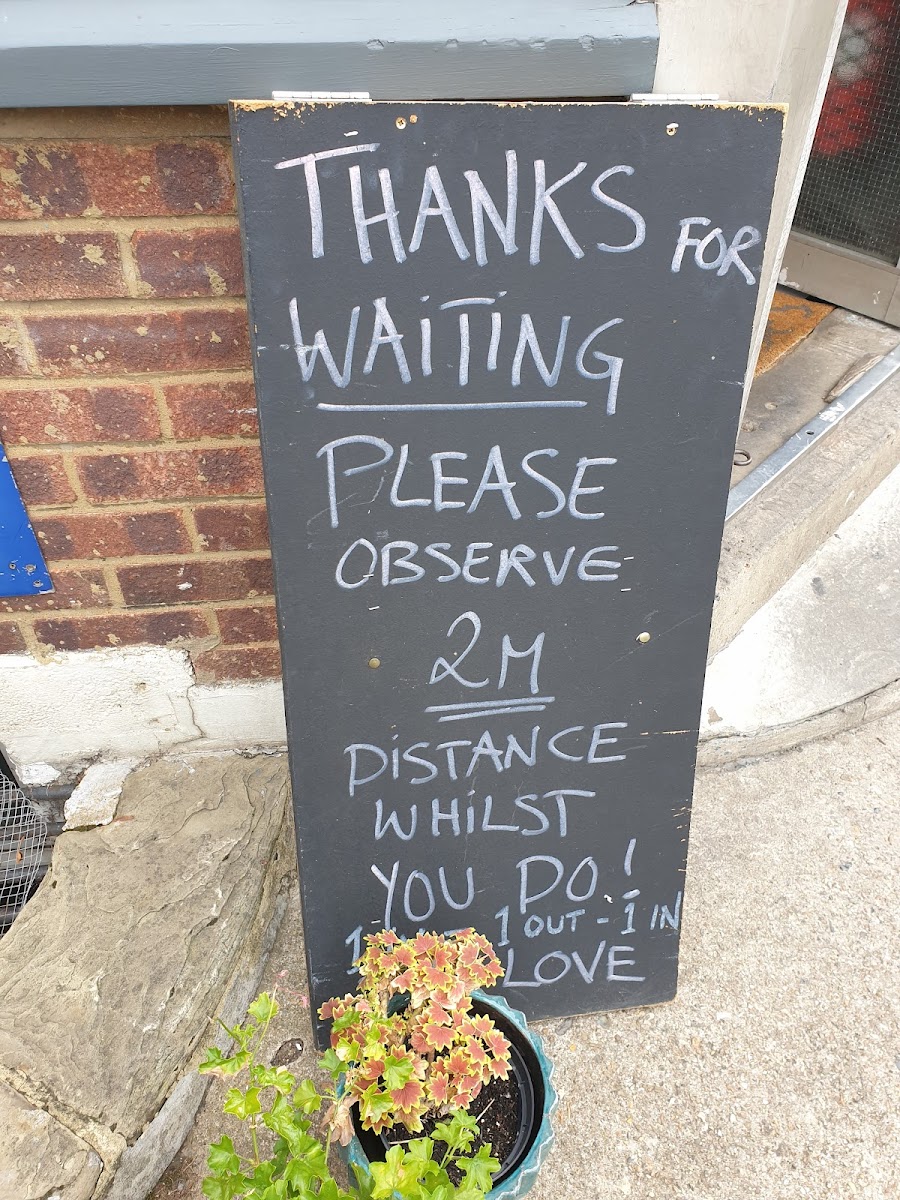 THANKS FOR
WAITING
PLEASE
OBSERVE
2M
DISTANCE
WHILST
YOU DO!
1 OUT - 1 IN
LOVE